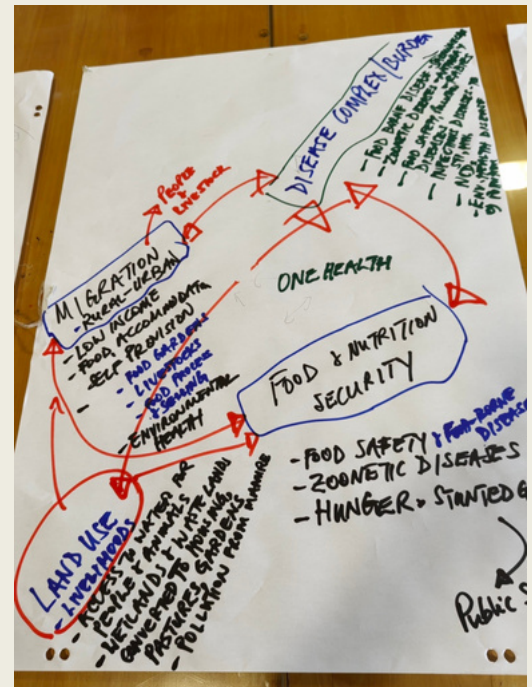 DISEASE COMPLEX/BURDEN
- FOOD BORNE DISEASE
- ZOONETIC DISEASE
- FOOD SAFETY
DISEASE
- INFECTIOUS DISEASE
- NCD
- ENV HEALTH DISEASE
PEOPLE &
LIVESTOCK
MIGRATION
- RURAL-URBAN
- LOW INCOME
- FOOD, ACCOMMODATIO
SELF PROVISION
- FOOD GARDENS
- LIVESTOCKS
- FOOD PROCESS
& SELLING
- ENVIRONMENTAL
HEALTH
ONE HEALTH
FOOD & NUTRITION
SECURITY
- FOOD SAFETY & FOOD-BORNE
DISEASE
- ZOONETIC DISEASES
- HUNGER & STUNTED G
Public
LAND USE
- LIVELIHOODS
- ACCESS TO WATER FOR
PEOPLE & ANIMALS
- WETLANDS & WASTE LANDS
CONVERTED TO HOUSING,
PASTURES, GARDENS
- POLLUTION FROM MANURE